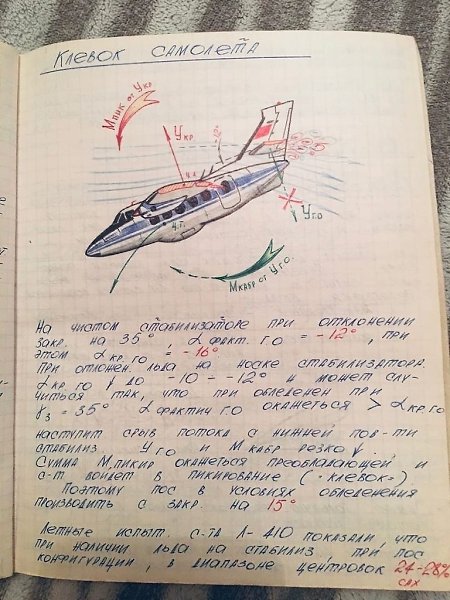 Клевок самолета
Мпик от Укр
Укр
-12°
Ч.Д.
Ц.Т.
Уго
Мкабр от Уго.
На чистом стабилизаторе при отклонении
закр. на 35°, α факт. го = -12°, при
этом α кр. го = -16°
При отложен. льда на носке стабилизатора.
α кр. го ↓ до -10 - -12° и может слу-
читься так, что при обледенен при
γз = 35° α фактич го окажеться > α кр. го
наступит срыв потока с нижней пов-ти
стабилиз Уго и М кабр. резко ↓.
Сумма М пикир окажеться преобладающей и
с-т войдет в пикирование ("клевок")
Поэтому пос в условиях обледенения
производить с закр. на 15°
Летные испыт. с-та Л-410 показали, что
при наличии льда на стабилиз, при пос
конфигурации, в диапазоне центровок 24-28%
сах